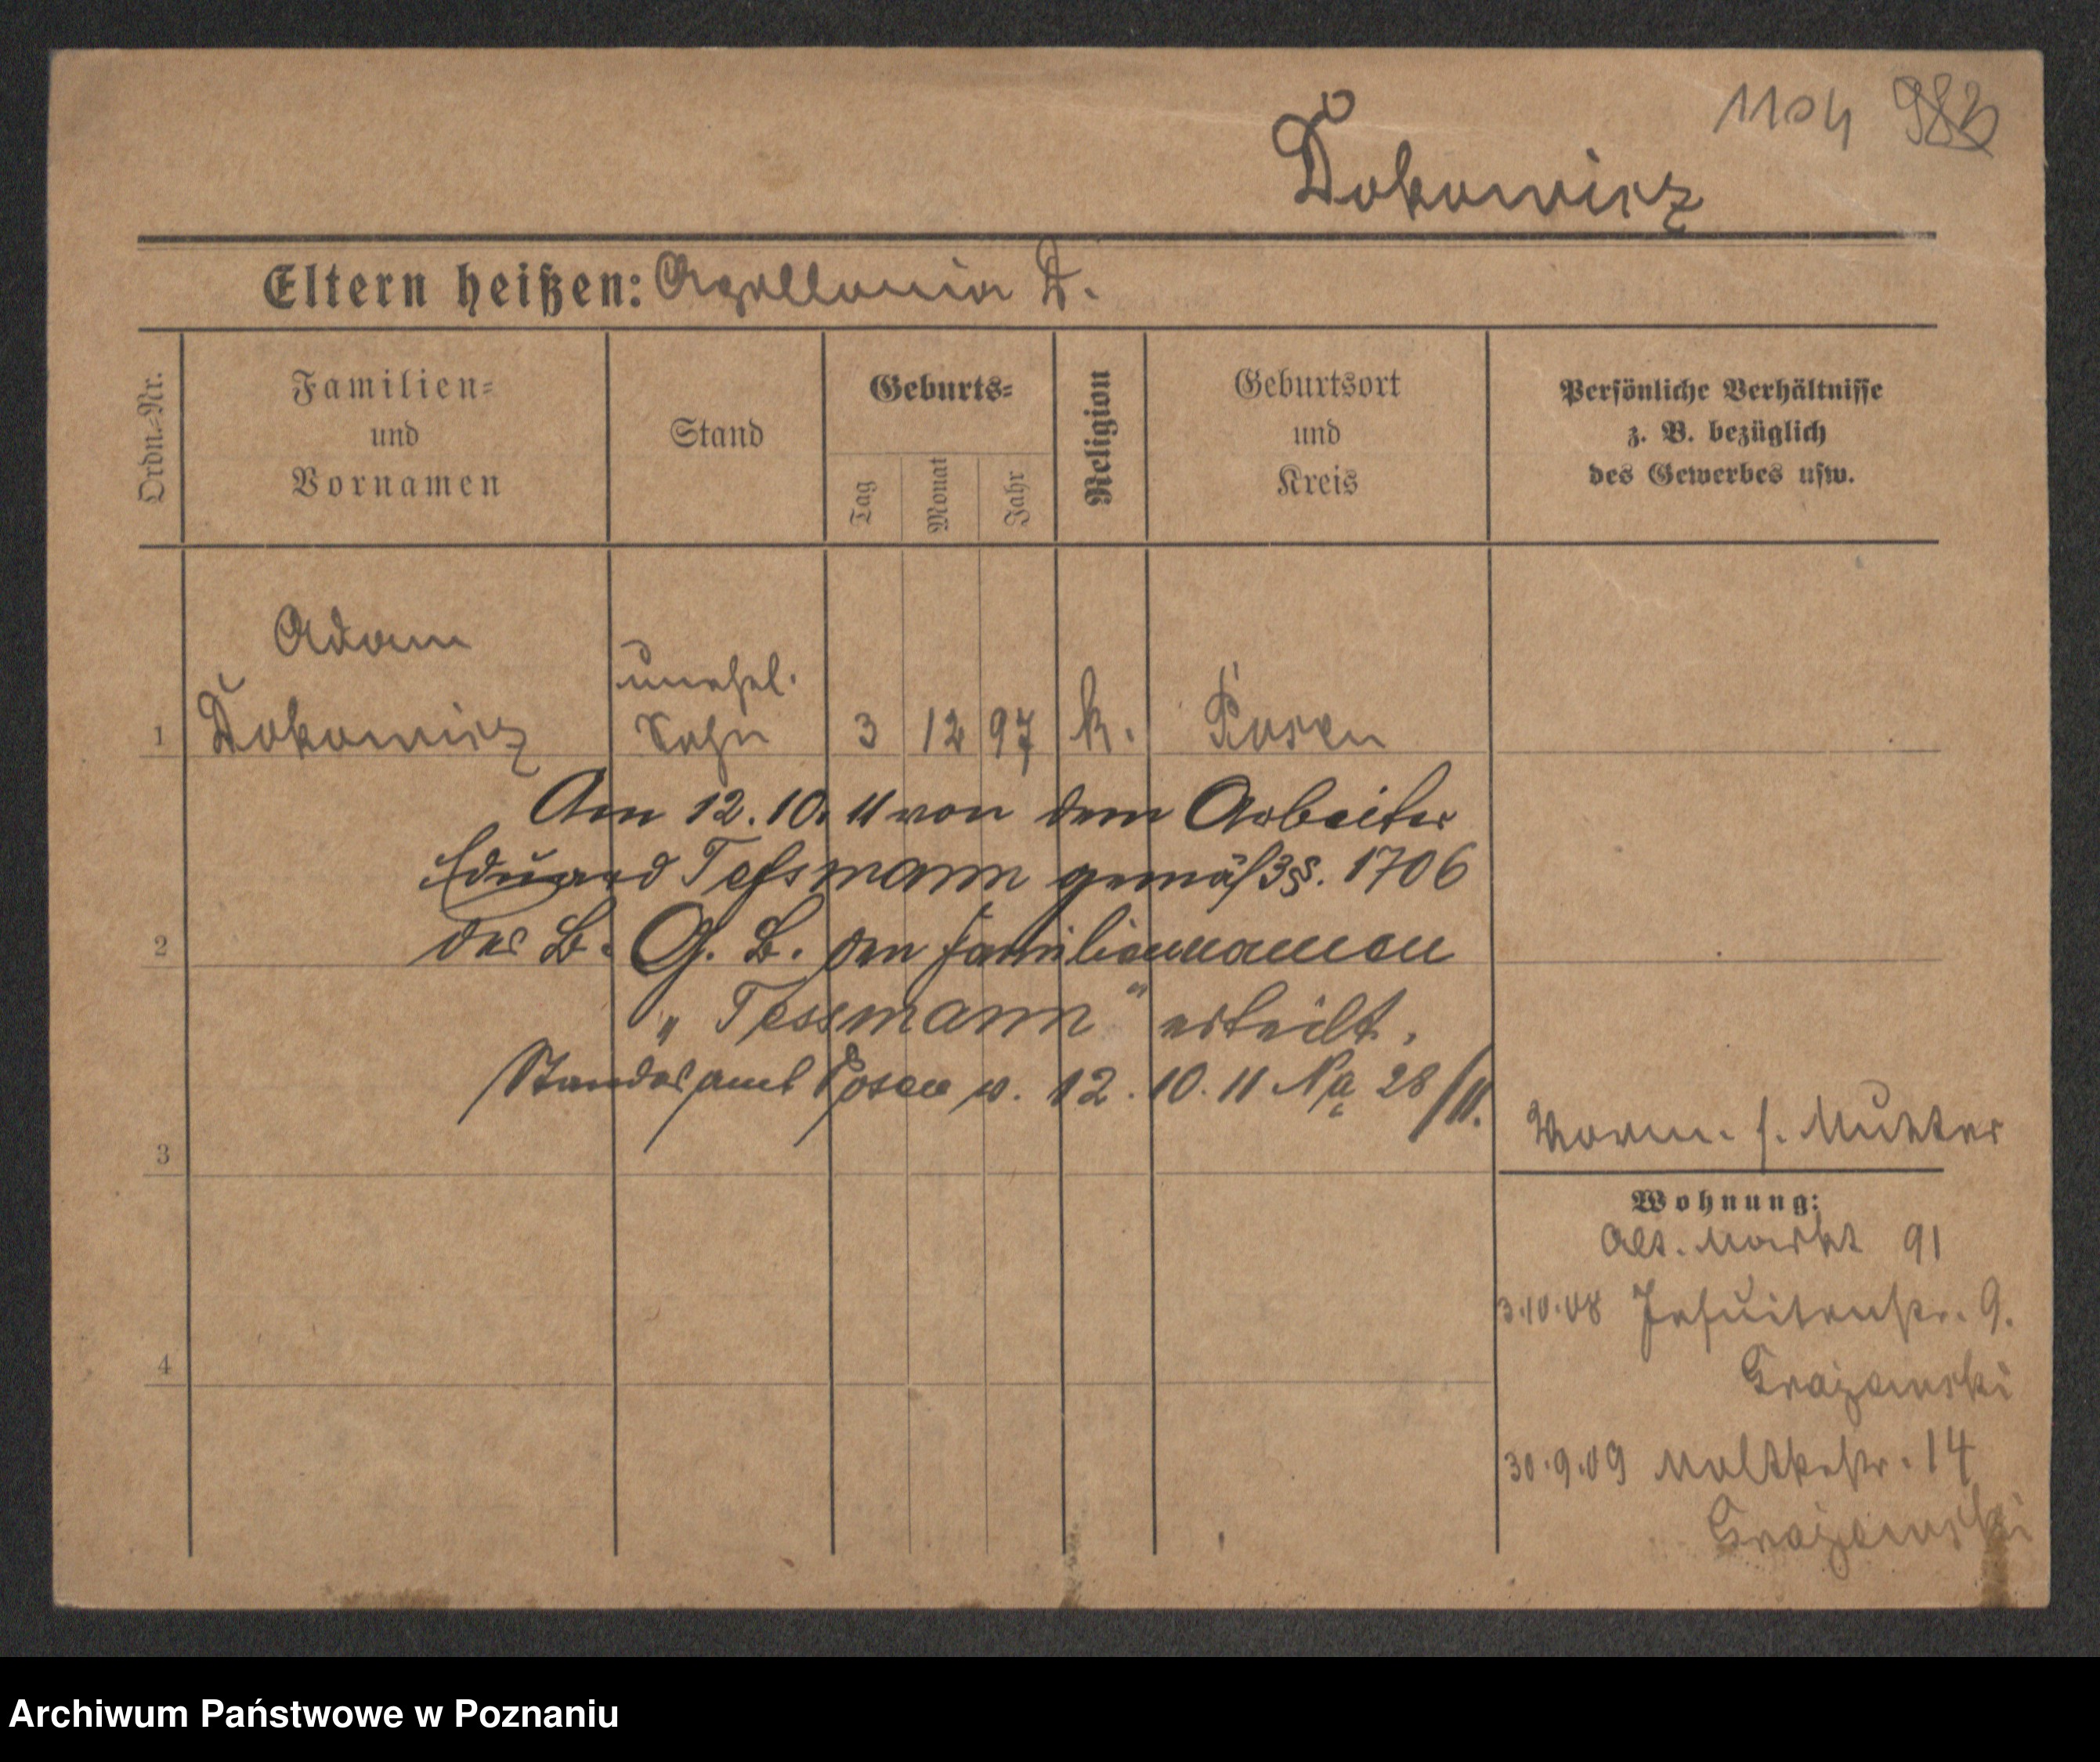 1104 983
Dokowicz
Eltern heißen: Apollonia D.
Ordn.-Nr.
Familien-
und
Vornamen
Stand
Geburts-
Tag
Monat
Jahr
Religion
Geburtsort
und
Kreis
Persönliche Verhältnisse
z. B. bezüglich
des Gewerbes usw.
Adam
unehel.
1 Dokowicz Sohn 3 12 97 k. Posen
Am 12.10.11 von dem Arbeiter
Eduard Tessmann gemäß §. 1706
2 des B. G. B. den Familiennamen
„Tessmann“ erteilt.
Standesamt Posen v. 12.10.11 No 28/11.
3 Vorm. s. Mutter
Wohnung:
Alt. Markt 91
3.10.08 Jesuitenstr. 9.
4 Grajewski
30.9.09 Moltkestr. 14
Grajewski
Archiwum Państwowe w Poznaniu